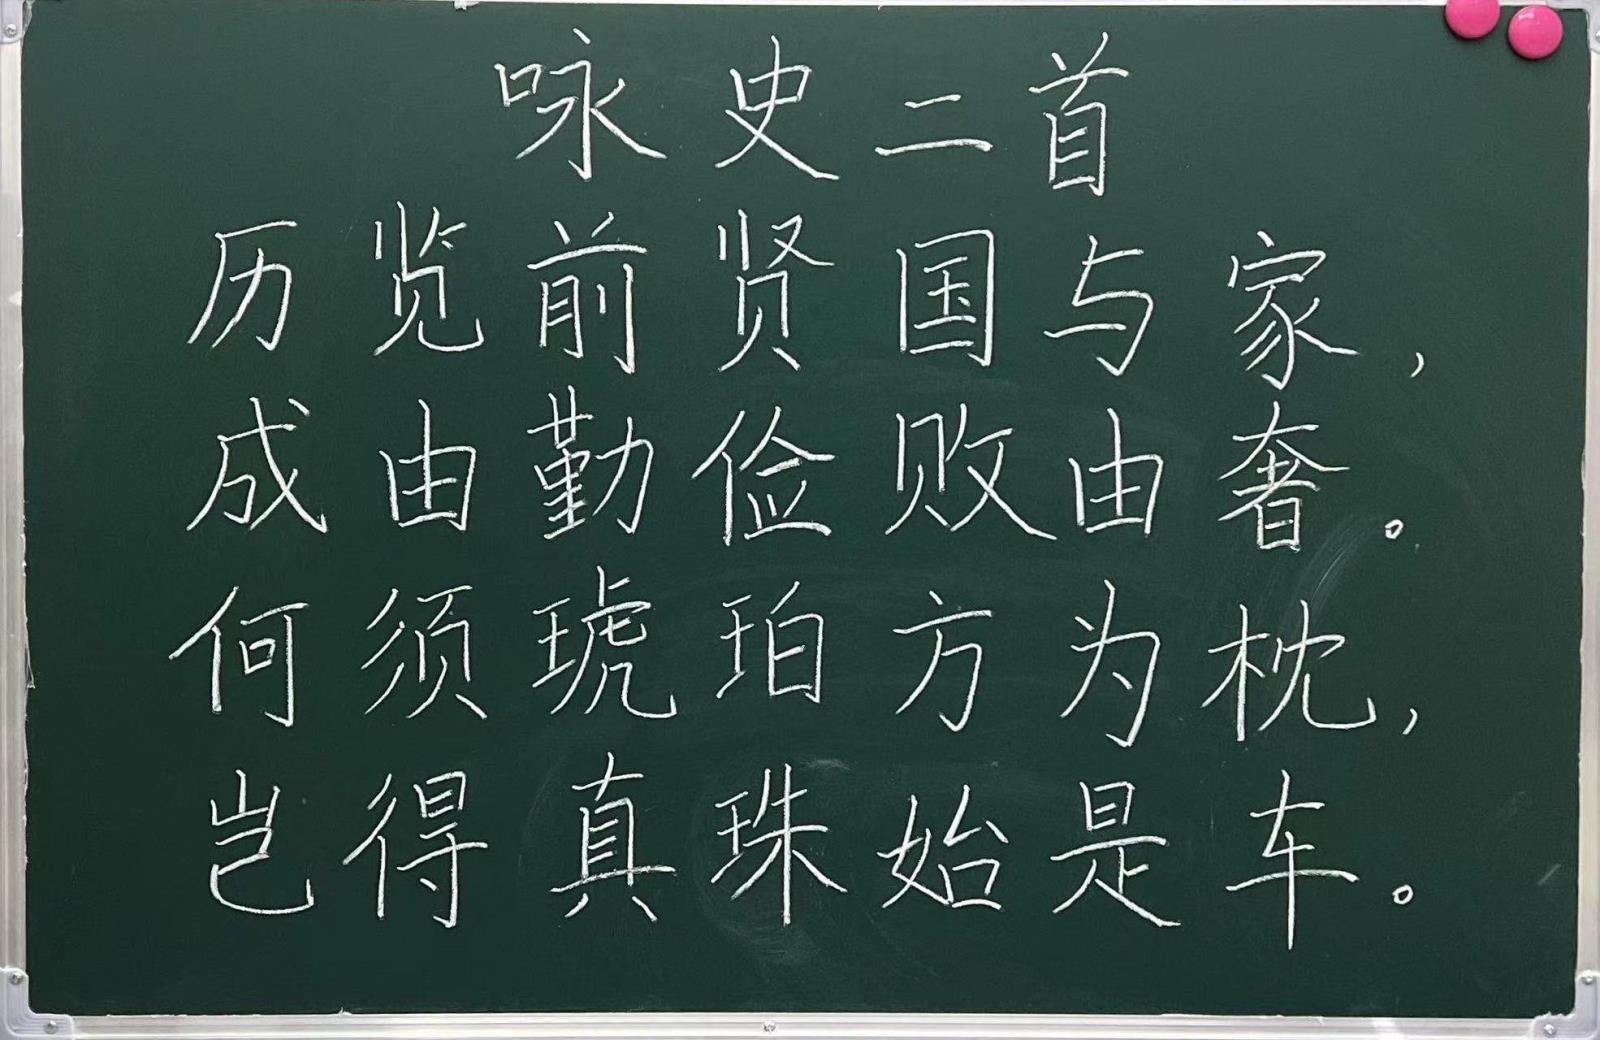 咏史二首
历览前贤国与家，
成由勤俭败由奢。
何须琥珀方为枕，
岂得真珠始是车。